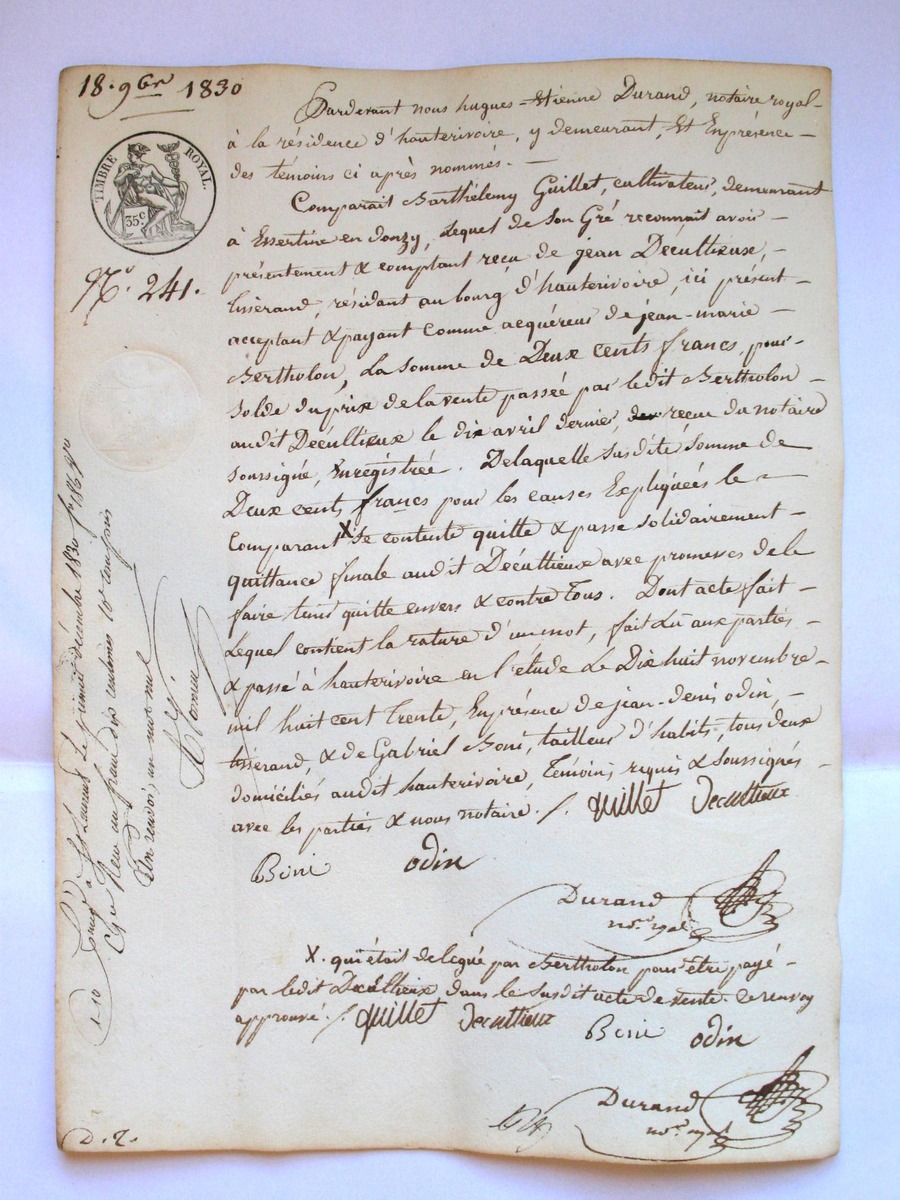 18. 9bre 1830
TIMBRE ROYAL.
35c.
N.o 241.
Pardevant nous hugues-Etienne Durand, notaire royal-
à la résidence d'hauterivoire, y demeurant, Et En présence-
des témoins ci après nommés.-
Comparait Barthélemy Guillet, cultivateur, demeurant
à Essertine en donzy, Lequel de Son Gré reconnait avoir-
présentement & comptant reçu de jean Décultieuse,-
tisserand, résidant au bourg d'hauterivoire, ici présent-
acceptant & payant comme acquéreur de jean-marie-
Bertholon, La Somme de Deux cents francs, pour-
Solde du prix de la vente passée par ledit Bertholon-
audit Décultieux le dix avril dernier, reçue du notaire
soussigné, Enregistrée. De laquelle Susdite Somme de
Deux cents francs pour les causes Expliquées le-
Comparant X Se contente quitte & passe solidairement-
quittance finale audit Décultieux avec promesse de le
faire tenir quitte envers & contre Tous. Dont acte fait-
Lequel contient la rature d'un mot, fait Lû aux parties-
& passé à hauterivoire en l'étude Le Dix huit novembre-
mil huit cent trente, En présence de jean-denis odin,-
tisserand, & de Gabriel Boné, tailleur d'habits, tous deux
domiciliés audit hauterivoire, Témoins requis & Soussignés
avec les parties & nous notaire./.
quillet Decultieux
Boni odin
Durand
no.re royal
X. qui était délégué par Bertholon pour être payé-
par ledit Décultieux dans le Susdit acte de vente. Ce renvoy
approuvé./. quillet Decultieux
Boni odin
Durand
no.re royal
Enregé à St Laurent Le premier décembre 1830 fo 86
Reçu un franc dix centimes 10e compris
Un renvoi, un mot nul
D. 2.